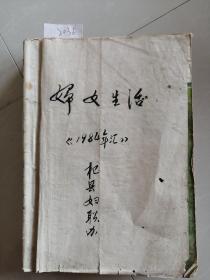 妇女生活
《1986年汇》
杞县妇联办